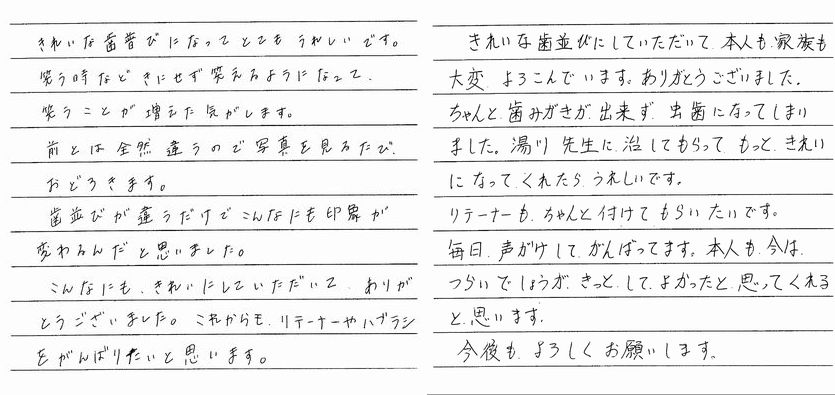 きれいな歯並びになってとてもうれしいです。
笑う時などきにせず笑えるようになって、
笑うことが増えた気がします。
前とは全然違うので写真を見るたび、
おどろきます。
歯並びが違うだけでこんなにも印象が
変わるんだと思いました。
こんなにも、きれいにしていただいて、ありが
とうございました。これからも、リテーナーやハブラシ
をがんばりたいと思います。
きれいな歯並びにしていただいて、本人も、家族も
大変、よろこんでいます。ありがとうございました。
ちゃんと、歯みがきが、出来ず、虫歯になってしまい
ました。湯川先生に、治してもらって、もっと、きれい
になって、くれたら、うれしいです。
リテーナーも、ちゃんと付けてもらいたいです。
毎日、声がけして、がんばってます。本人も、今は、
つらいでしょうが、きっと、して、よかったと、思ってくれる
と、思います。
今後も、よろしくお願いします。